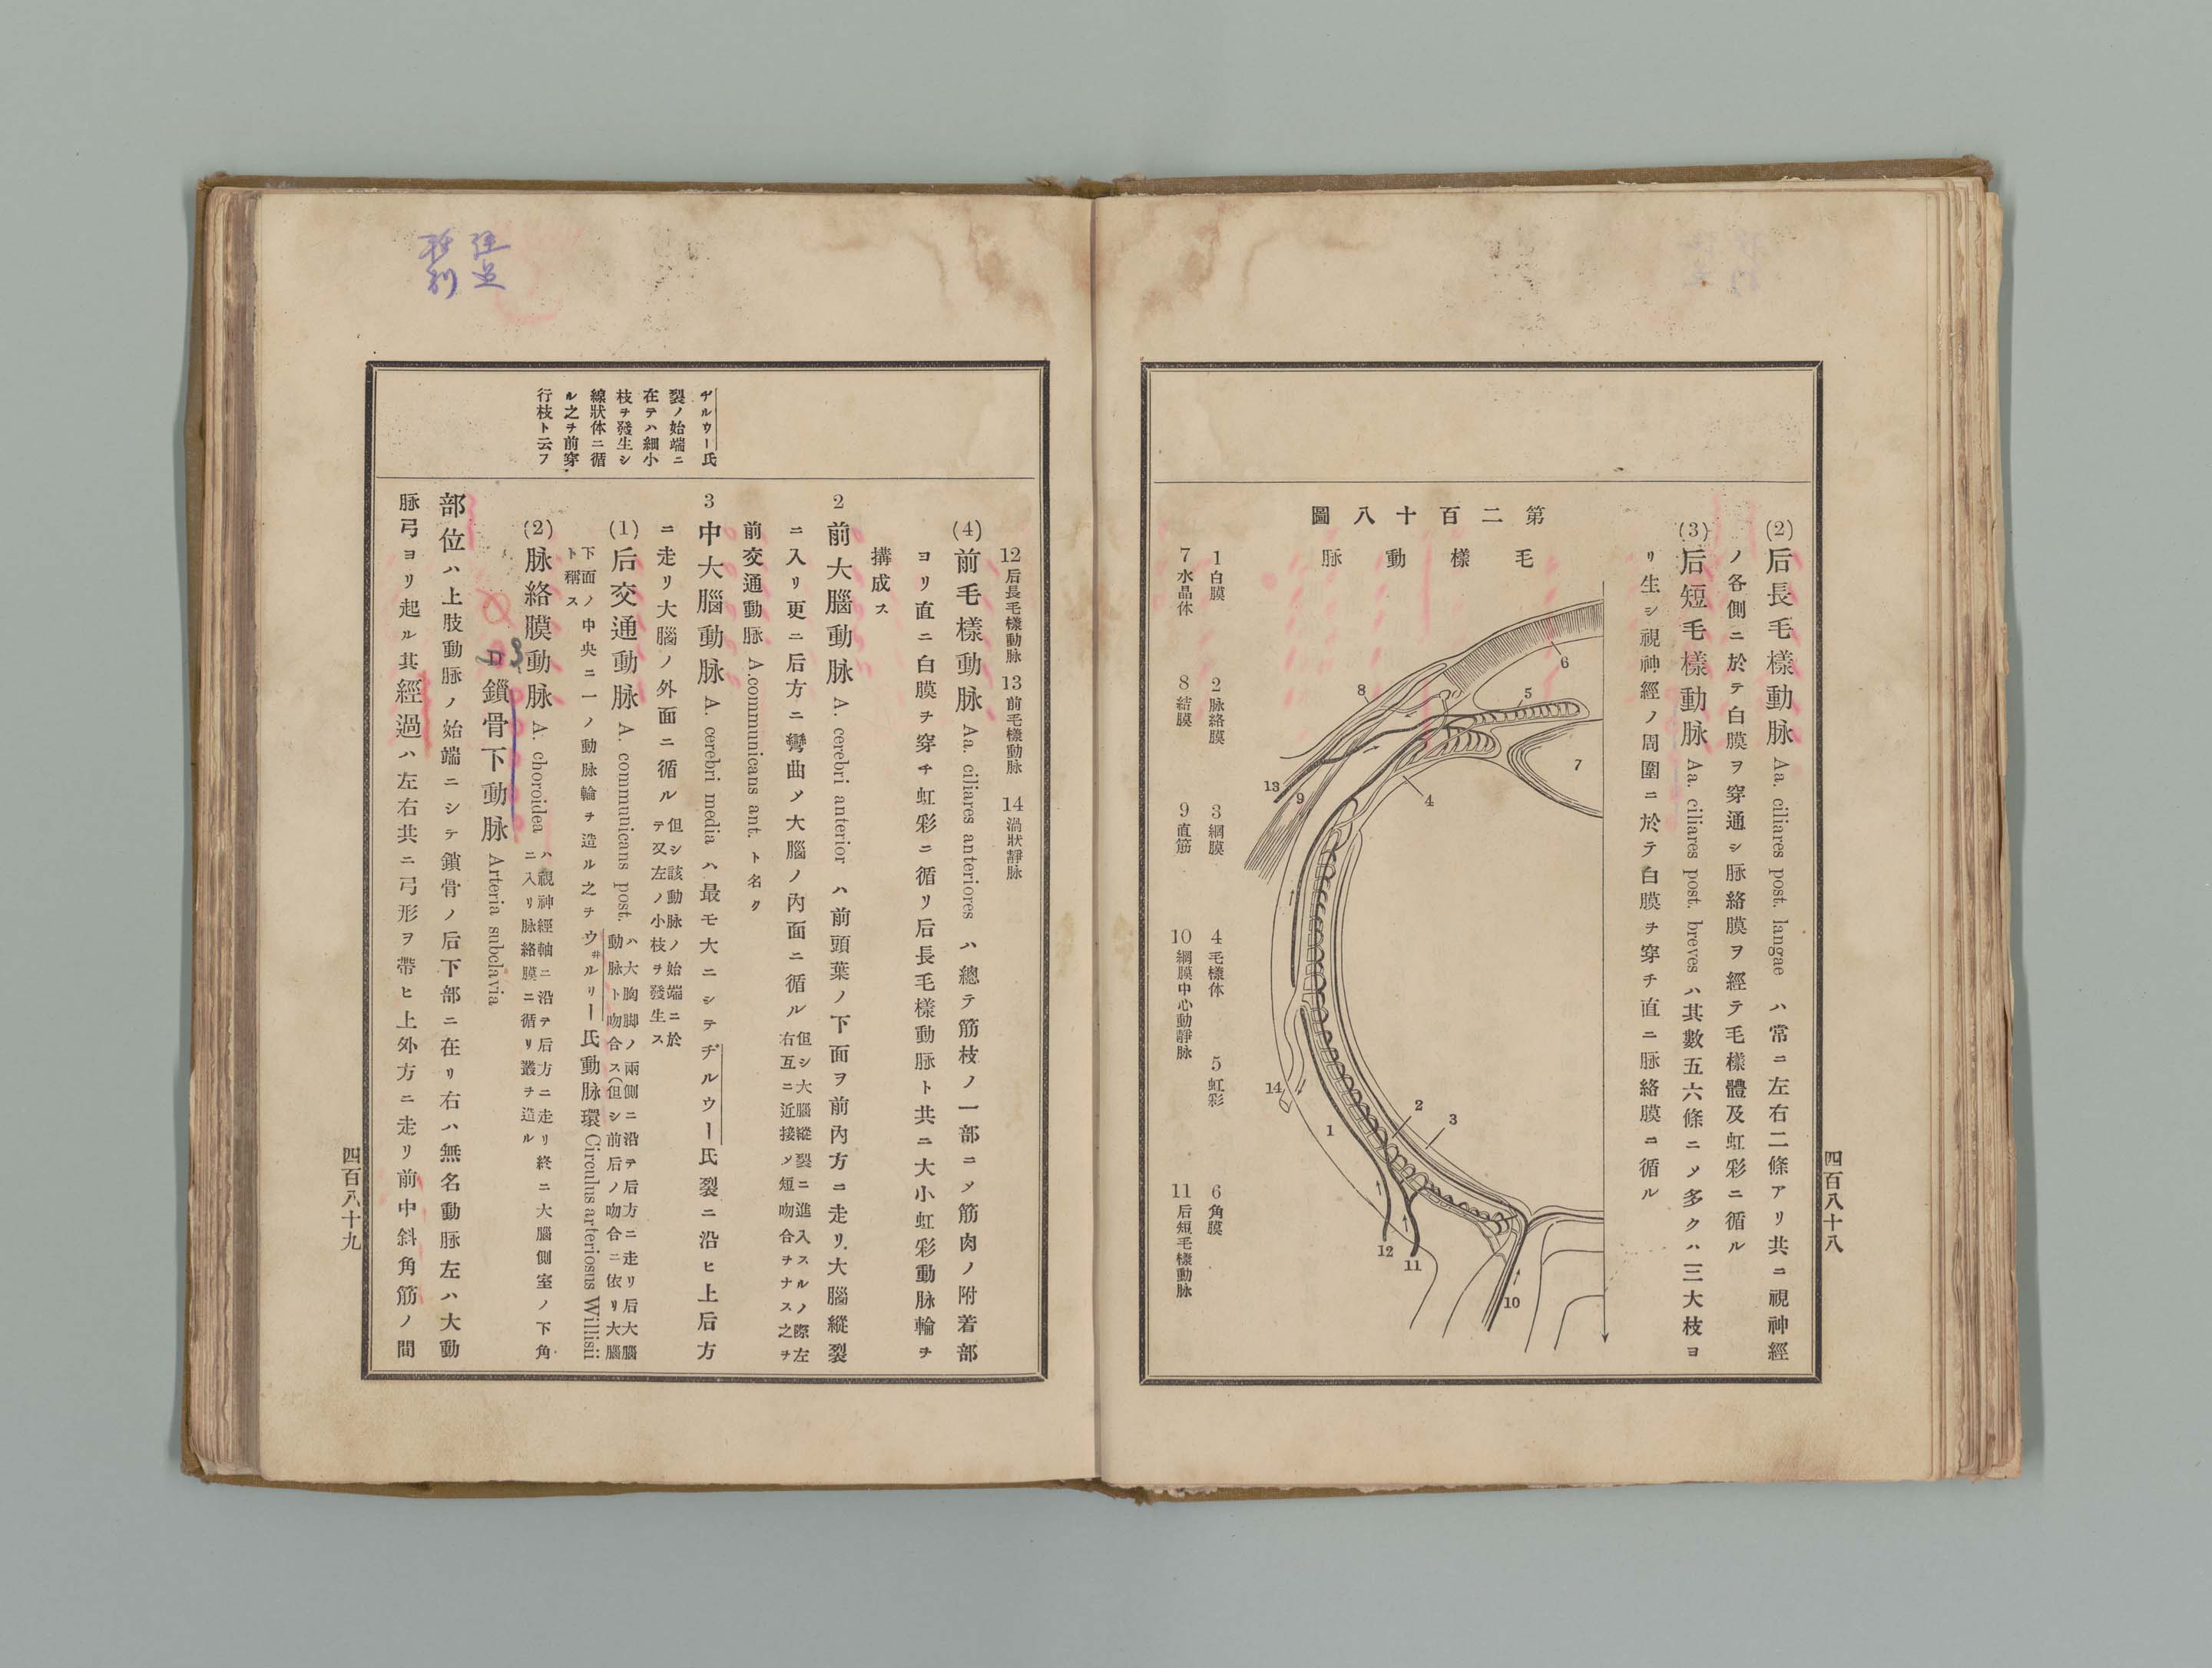 (2)后長毛樣動脉 Aa. ciliares post. langae ハ常ニ左右二條アリ共ニ視神經
ノ各側ニ於テ白膜ヲ穿通シ脉絡膜ヲ經テ毛樣體及虹彩ニ循ル
(3)后短毛樣動脉 Aa. ciliares post. breves ハ其數五六條ニメ多クハ三大枝ヨ
リ生シ視神經ノ周圍ニ於テ白膜チ穿チ直ニ脉絡膜ニ循ル
第二百十八圖
毛樣動脉
6
5
8
7
4
13
9
14
1
2
3
12
11
10
1白膜 2脉絡膜 3網膜 4毛樣体 5虹彩 6角膜
7水晶体 8結膜 9直筋 10網膜中心動靜脉 11后短毛樣動脉
四百八十八
12后長毛樣動脉 13前毛樣動脉 14渦狀靜脉
(4)前毛樣動脉 Aa. ciliares anteriores ハ總テ筋枝ノ一部ニメ筋肉ノ附着部
ヨリ直ニ白膜チ穿チ虹彩ニ循リ后長毛樣動脉ト共ニ大小虹彩動脉輪チ
搆成ス
2前大腦動脉 A. cerebri anterior ハ前頭葉ノ下面ヲ前內方ニ走リ大腦縱裂
ニ入リ更ニ后方ニ彎曲メ大腦ノ內面ニ循ル
但シ大腦縱裂ニ進入スルノ際左
右互ニ近接メ短吻合チナス之ヲ
前交通動脉 A.communicans ant. ト名ク
3中大腦動脉 A. cerebri media ハ最モ大ニシテヂルウー氏裂ニ沿ヒ上后方
ニ走リ大腦ノ外面ニ循ル
但シ該動脉ノ始端ニ於
テ又左ノ小枝ヲ發生ス
(1)后交通動脉 A. communicans post.
ハ大胸脚ノ兩側ニ沿テ后方ニ走リ后大腦
動脉ト吻合ス(但シ前后ノ吻合ニ依リ大腦
下面ノ中央ニ一ノ動脉輪チ造ル之チウ井ルリー氏動脉環 Circulus arteriosus Willisii
ト稱ス
(2)脉絡膜動脉 A. choroidea
ハ視神經軸ニ沿テ后方ニ走リ終ニ大腦側室ノ下角
ニ入リ脉絡膜ニ循リ叢チ造ル
鎖骨下動脉 Arteria subclavia
部位ハ上肢動脉ノ始端ニシテ鎖骨ノ后下部ニ在リ右ハ無名動脉左ハ大動
脉弓ヨリ起ル其經過ハ左右共ニ弓形ヲ帶ヒ上外方ニ走リ前中斜角筋ノ間
ヂルウー氏
裂ノ始端ニ
在テハ細小
枝チ發生シ
線狀体ニ循
ル之チ前穿
行枝ト云フ
四百八十九